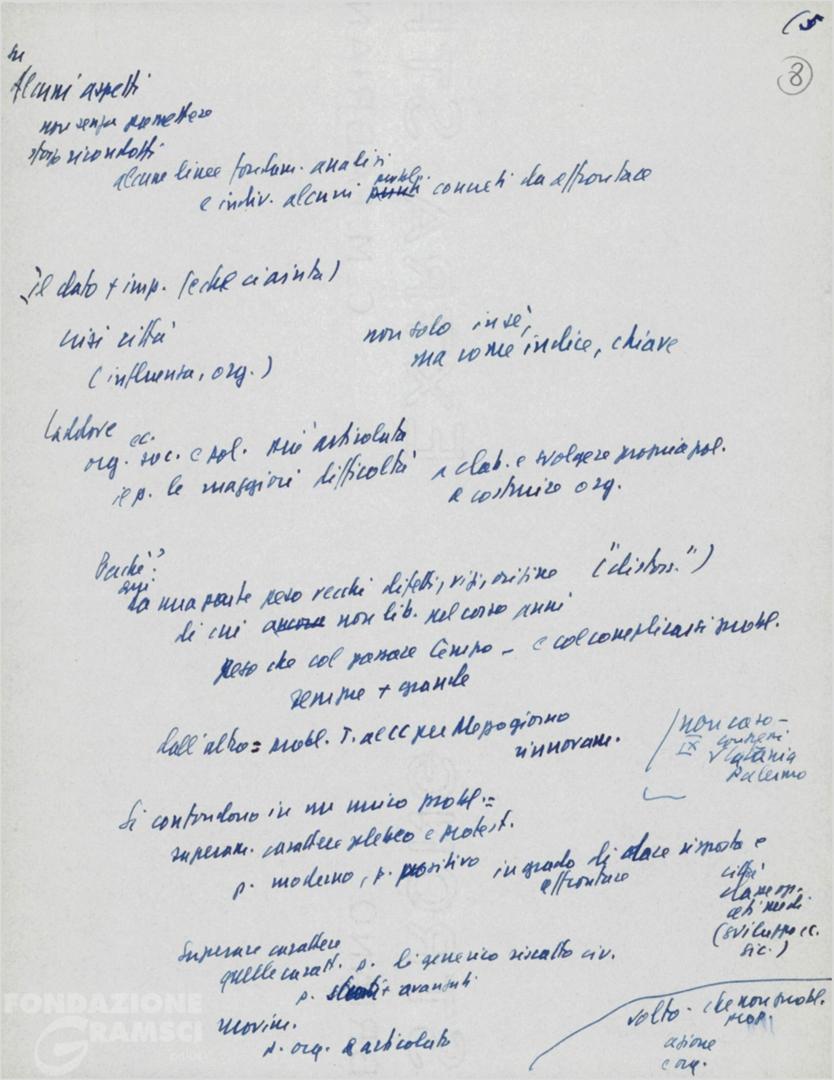 (5
8
su
Alcuni aspetti
non senza premettere
sforzo ricondotti
alcune linee fondam. analisi
e indiv. alcuni probl. concreti da affrontare
il dato + imp. (e che ci aiuta)
crisi città
(influenza, org.)
non solo in sé,
ma come indice, chiave
Laddove ec.
org. soc. e pol. più articolata
il p. le maggiori difficoltà
a elab. e svolgere propria pol.
a costruire org.
Perché?
qui
da una parte peso vecchi difetti, vizi, origine ("distors.")
di cui ancora non lib. nel corso anni
peso che col passare tempo - e col complicarsi probl.
sempre + grande
dall'altro = probl. T. al CC per Mezzogiorno
rinnovam.
non caso -
IX congressi
Catania
Palermo
Si confondono in un unico probl. =
superam. carattere plebeo e protest.
p. moderno, p. positivo in grado di dare risposta e
affrontare
città
classe op.
ceti medi
(sviluppo ec.
sic.)
Superare carattere
quelle caratt. p. di generico riscatto civ.
p. + avanzati
movim.
p. org. e articolato
volto - che non probl.
prop.
azione
e org.
FONDAZIONE
GRAMSCI